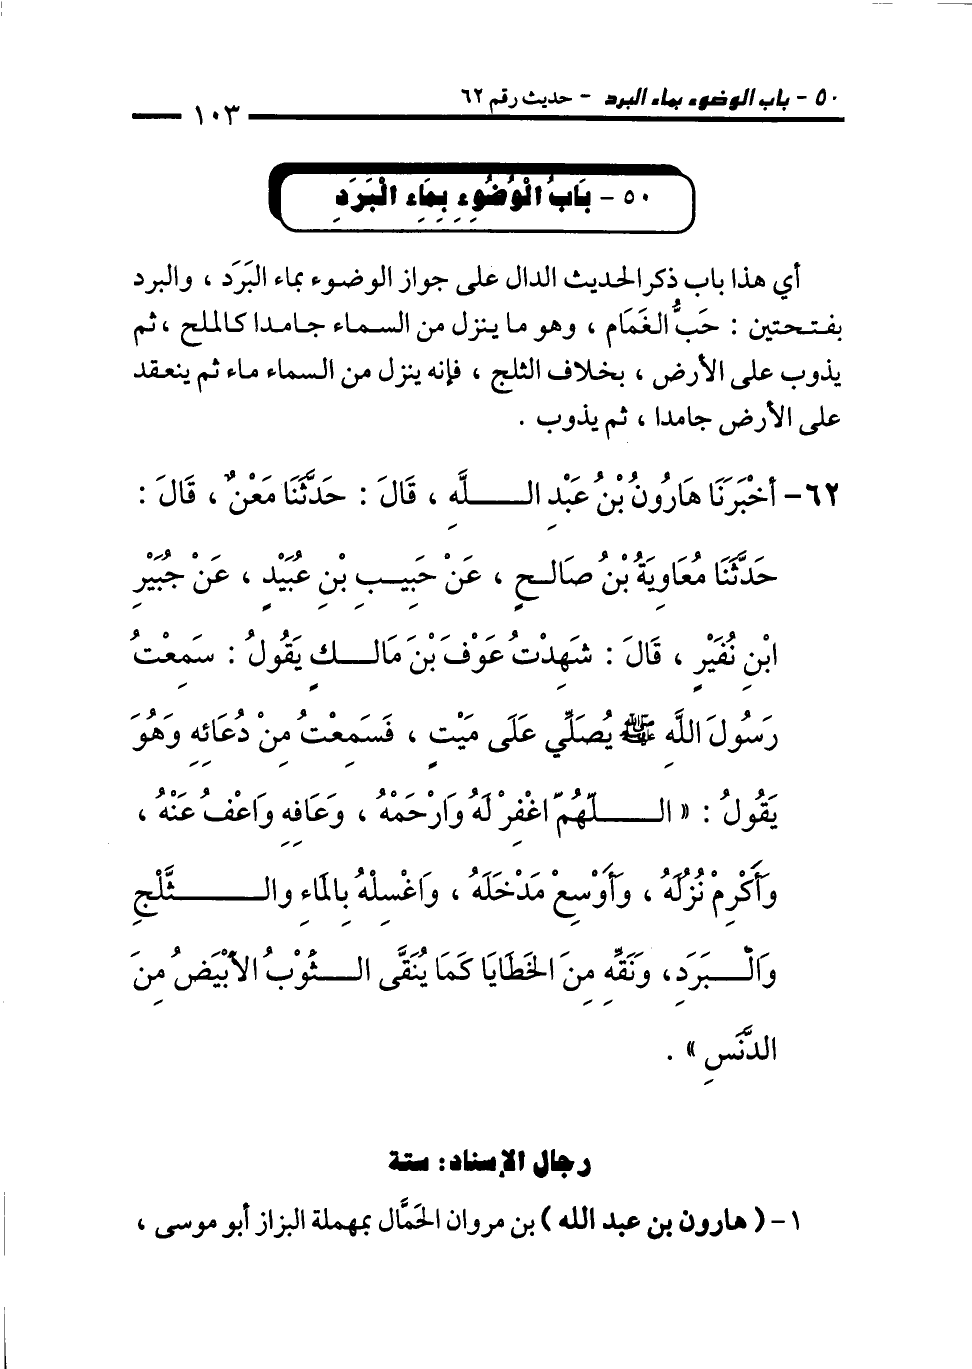 ٥٠ - باب الوضوء بماء البرد - حديث رقم ٦٢
١٠٣
٥٠ - بَابُ الْوُضُوءِ بِمَاءِ الْبَرَدِ
أي هذا باب ذكر الحديث الدال على جواز الوضوء بماء البَرَد ، والبرد
بفتحتين : حَبُّ الغَمَام ، وهو ما ينزل من السماء جامدا كالملح ، ثم
يذوب على الأرض ، بخلاف الثلج ، فإنه ينزل من السماء ماء ثم ينعقد
على الأرض جامدا ، ثم يذوب .
٦٢- أخْبَرَنَا هَارُونُ بْنُ عَبْدِ اللَّهِ ، قَالَ : حَدَّثَنَا مَعْنٌ ، قَالَ :
حَدَّثَنَا مُعَاوِيَةُ بْنُ صَالِحٍ ، عَنْ حَبِيبِ بْنِ عُبَيْدٍ ، عَنْ جُبَيْرِ
ابْنِ نُفَيْرٍ ، قَالَ : شَهِدْتُ عَوْفَ بْنَ مَالِكٍ يَقُولُ : سَمِعْتُ
رَسُولَ اللَّهِ ﷺ يُصَلِّي عَلَى مَيْتٍ ، فَسَمِعْتُ مِنْ دُعَائِهِ وَهُوَ
يَقُولُ : « اللّهُمّ اغْفِرْ لَهُ وَارْحَمْهُ ، وَعَافِهِ وَاعْفُ عَنْهُ ،
وَأَكْرِمْ نُزُلَهُ ، وَأَوْسِعْ مَدْخَلَهُ ، وَاغْسِلْهُ بِالمَاءِ وَالثَّلْجِ
وَالْبَرَدِ، وَنَقِّهِ مِنَ الخَطَايَا كَمَا يُنَقَّى الثَّوْبُ الأَبْيَضُ مِنَ
الدَّنَسِ » .
رجال الإسناد: ستة
١- ( هارون بن عبد الله ) بن مروان الحَمَّال بمهملة البزاز أبو موسى ،